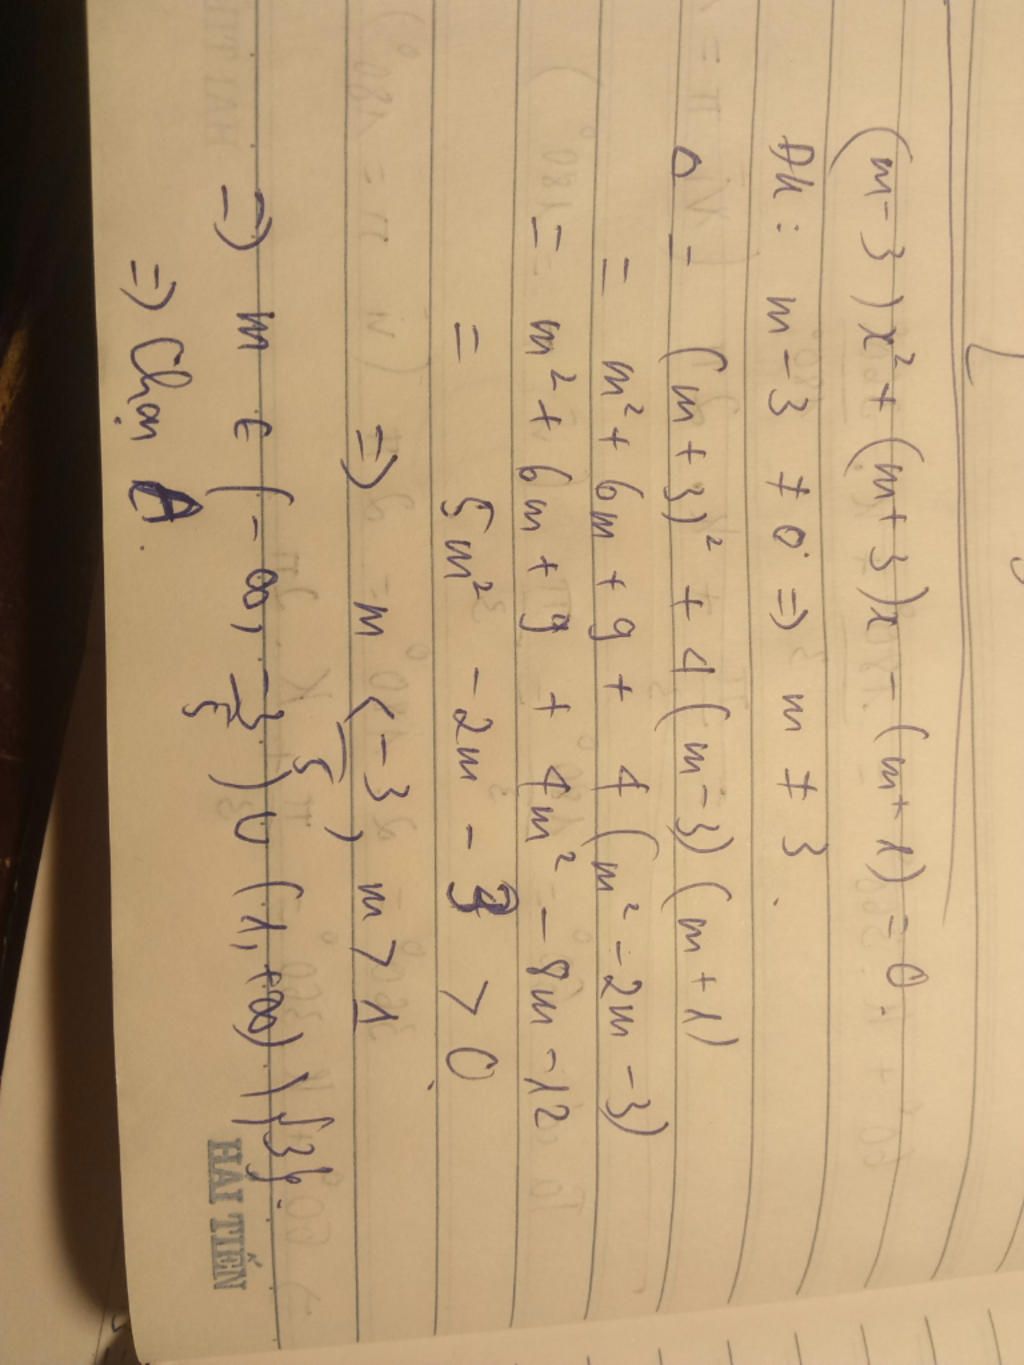 (m-3)x² + (m+3)x - (m+1) = 0.
Đk: m-3 ≠ 0 => m ≠ 3.
Δ = (m+3)² + 4(m-3)(m+1)
= m² + 6m + 9 + 4(m² - 2m - 3)
= m² + 6m + 9 + 4m² - 8m - 12
= 5m² - 2m - 3 > 0
=> m < -3/5, m > 1
=> m ∈ (-∞, -3/5) ∪ (1, +∞) \ {3}.
=> Chọn A.
HẢI TIẾN